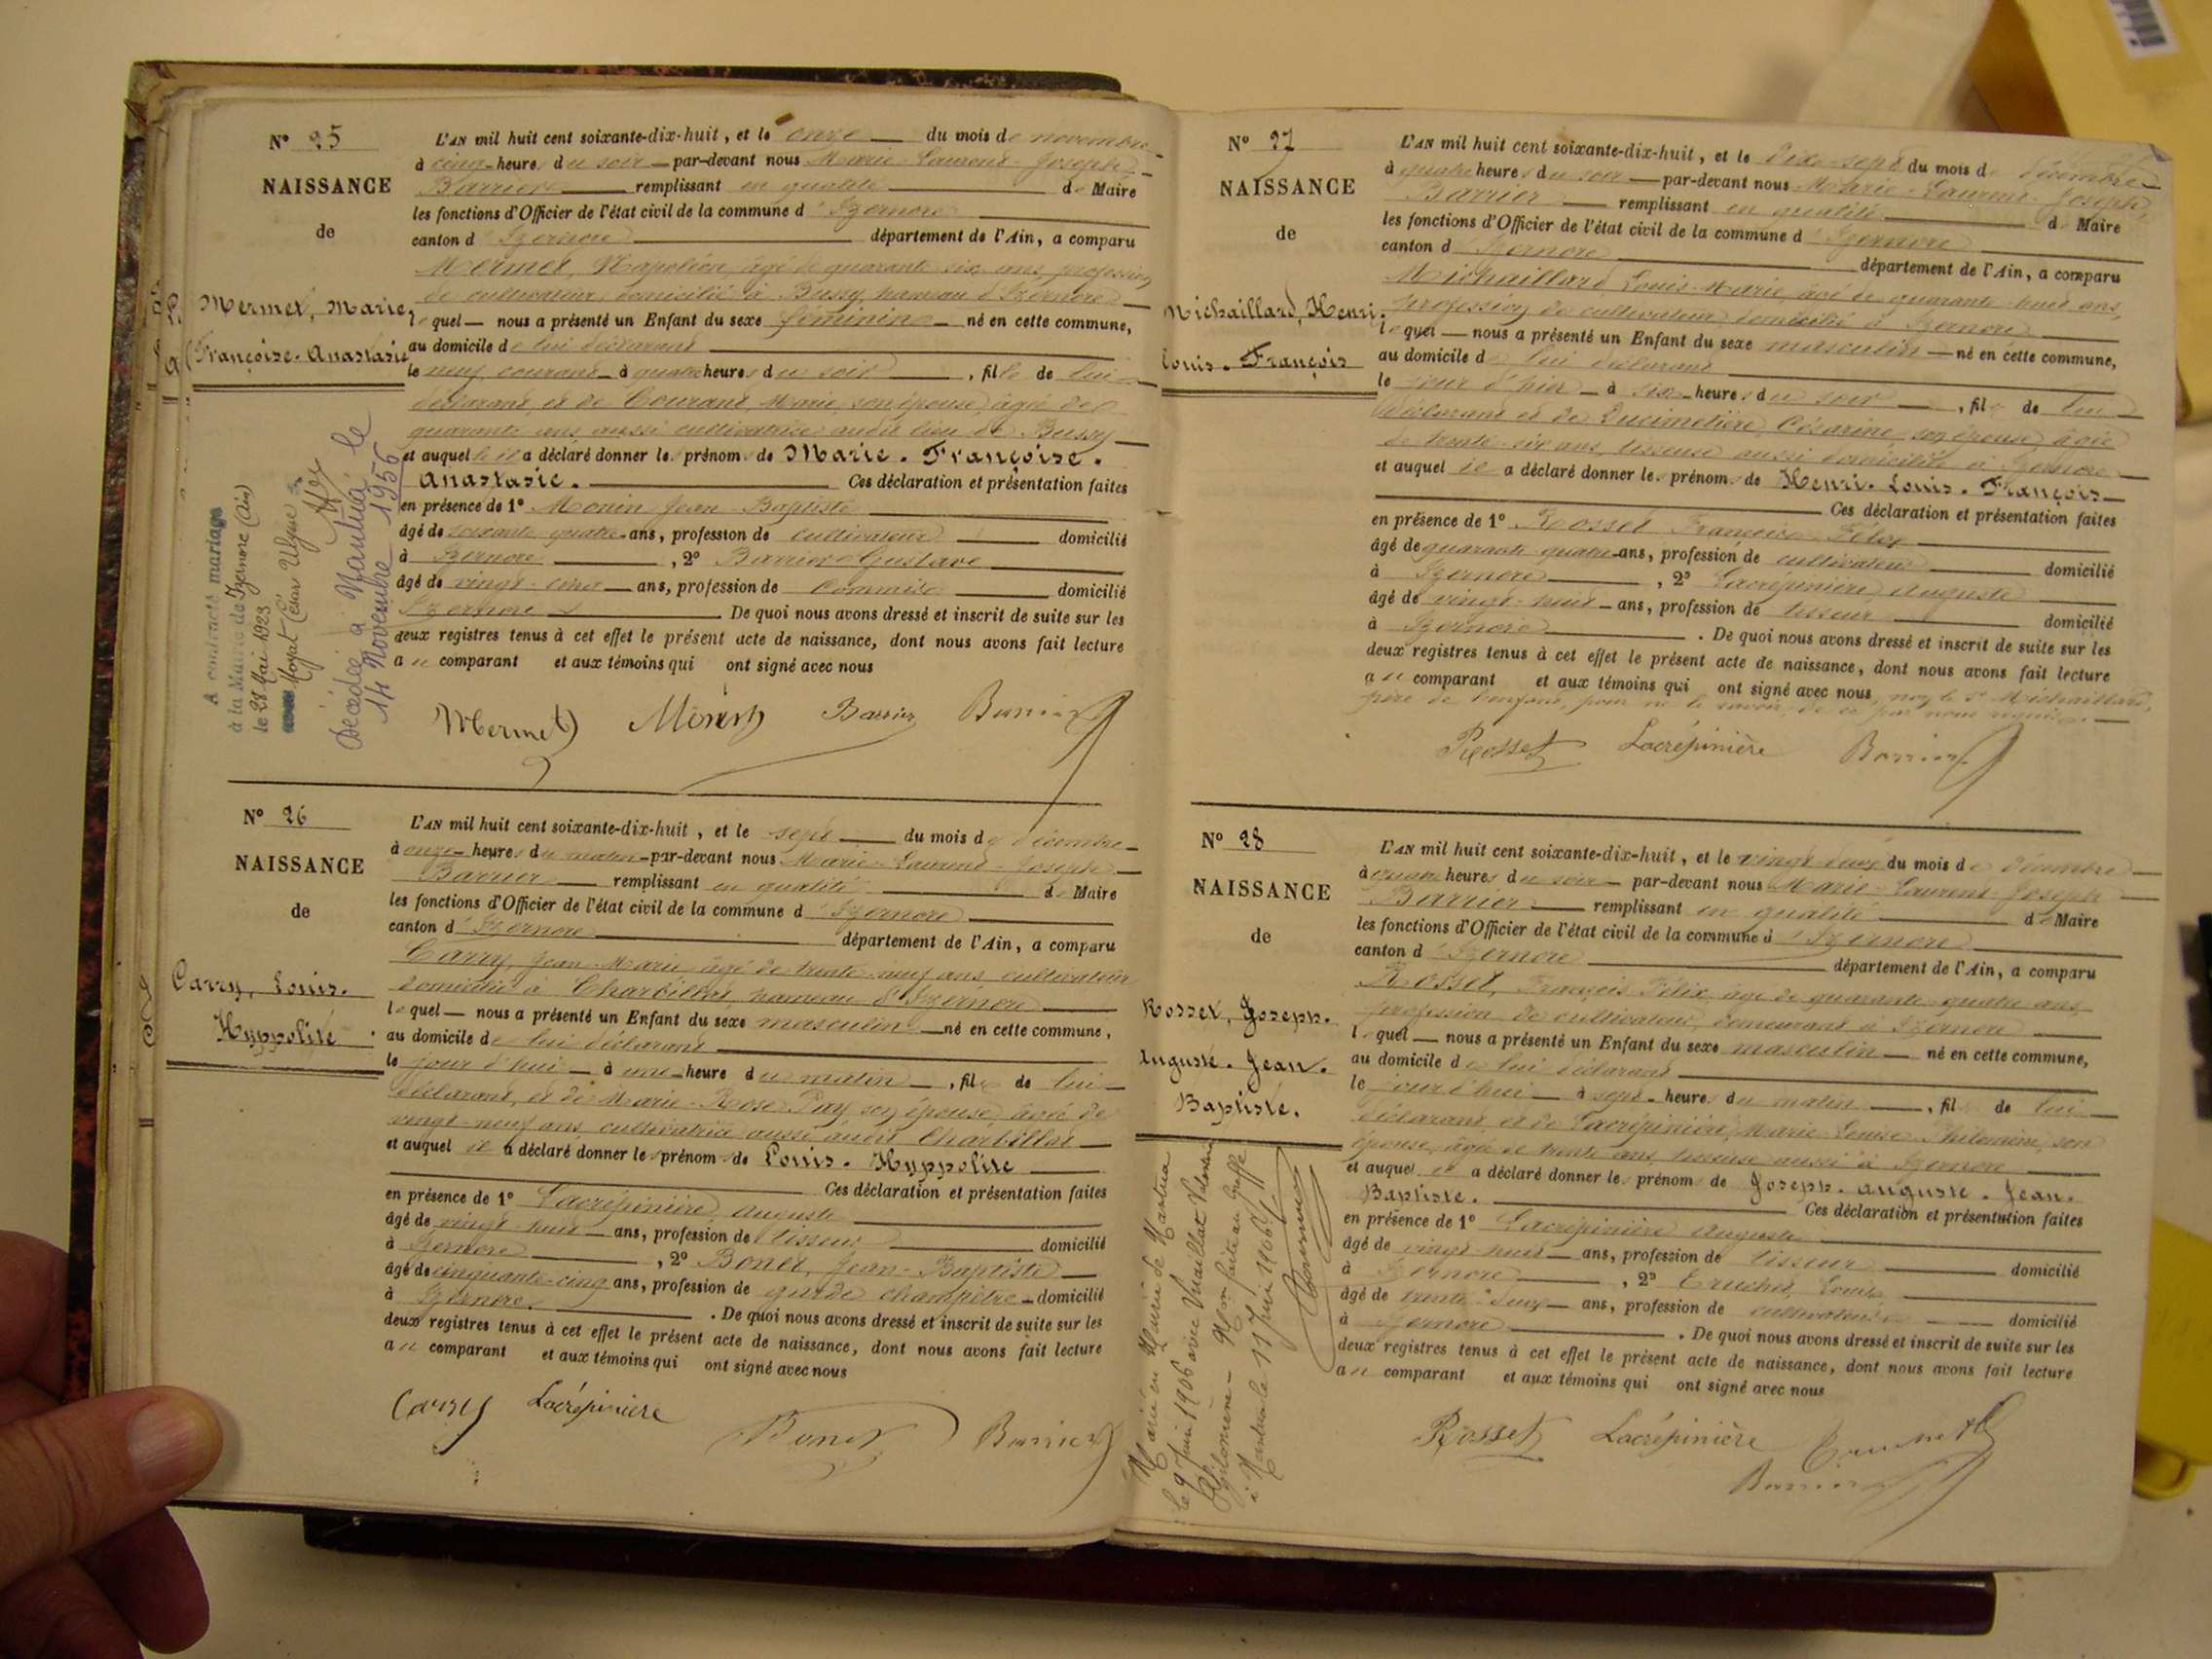 N° 25
NAISSANCE
de
Mermet, Marie,
Françoise. Anastasie
L'AN mil huit cent soixante-dix-huit, et le onze du mois de novembre
à cinq heures du soir par-devant nous Marie-Laurent-Joseph
Barrier remplissant en qualité de Maire
les fonctions d'Officier de l'état civil de la commune d'Izernore
canton d'Izernore département de l'Ain, a comparu
Mermet, Napoléon, âgé de quarante six ans, profession
de cultivateur, domicilié à Bussy, hameau d'Izernore
lequel nous a présenté un Enfant du sexe féminin né en cette commune,
au domicile de lui déclarant
le neuf courant à quatre heures du soir, fille de lui
déclarant, et de Courant, Marie, son épouse, âgée de
quarante ans aussi cultivatrice audit lieu de Bussy
et auquel il a déclaré donner les prénoms de Marie. Françoise.
Anastasie. Ces déclaration et présentation faites
en présence de 1° Monin Jean Baptiste
âgé de soixante quatre ans, profession de cultivateur domicilié
à Izernore, 2° Barrier Gustave
âgé de vingt-cinq ans, profession de commis domicilié
Izernore De quoi nous avons dressé et inscrit de suite sur les
deux registres tenus à cet effet le présent acte de naissance, dont nous avons fait lecture
au comparant et aux témoins qui ont signé avec nous
Mermet Monin Barrier Barrier
A contracté mariage
à la Mairie de Izernore (Ain)
le 28 Mai 1923
Moyat César Ulysse
Décédée à Nantua le
14 Novembre 1956
N° 26
NAISSANCE
de
Carry, Louis.
Hyppolite
L'AN mil huit cent soixante-dix-huit, et le sept du mois de décembre
à onze heures du matin par-devant nous Marie-Laurent-Joseph
Barrier remplissant en qualité de Maire
les fonctions d'Officier de l'état civil de la commune d'Izernore
canton d'Izernore département de l'Ain, a comparu
Carry, Jean-Marie âgé de trente-neuf ans, cultivateur
domicilié à Charbillat, hameau d'Izernore
lequel nous a présenté un Enfant du sexe masculin né en cette commune,
au domicile de lui déclarant
le jour d'hui à une heure du matin, fils de lui
déclarant, et de Marie-Rose Pay son épouse, âgée de
vingt-neuf ans cultivatrice aussi audit Charbillat
et auquel il a déclaré donner les prénoms de Louis. Hyppolite
Ces déclaration et présentation faites
en présence de 1° Lacrépinière Auguste
âgé de vingt-huit ans, profession de tisseur domicilié
à Izernore, 2° Bonet, Jean-Baptiste
âgé de cinquante-cinq ans, profession de garde champêtre domicilié
à Izernore. De quoi nous avons dressé et inscrit de suite sur les
deux registres tenus à cet effet le présent acte de naissance, dont nous avons fait lecture
au comparant et aux témoins qui ont signé avec nous
Carry Lacrépinière Bonet Barrier
N° 27
NAISSANCE
de
Michaillard, Henri.
Louis. François
L'AN mil huit cent soixante-dix-huit, et le dix-sept du mois de décembre
à quatre heures du soir par-devant nous Marie-Laurent-Joseph
Barrier remplissant en qualité de Maire
les fonctions d'Officier de l'état civil de la commune d'Izernore
canton d'Izernore département de l'Ain, a comparu
Michaillard Louis-Marie, âgé de quarante-huit ans,
profession de cultivateur, domicilié à Izernore
lequel nous a présenté un Enfant du sexe masculin né en cette commune,
au domicile de lui déclarant
le jour d'hier à six heures du soir, fils de lui
déclarant et de Ducimetière, Césarine, son épouse, âgée
de trente-six ans, tisseuse aussi domiciliée à Izernore
et auquel il a déclaré donner les prénoms de Henri. Louis. François
Ces déclaration et présentation faites
en présence de 1° Rosset François Félix
âgé de quarante-quatre ans, profession de cultivateur domicilié
à Izernore, 2° Lacrépinière Auguste
âgé de vingt-huit ans, profession de tisseur domicilié
à Izernore. De quoi nous avons dressé et inscrit de suite sur les
deux registres tenus à cet effet le présent acte de naissance, dont nous avons fait lecture
au comparant et aux témoins qui ont signé avec nous, non le Sr Michaillard,
père de l'enfant, pour ne le savoir, de ce par nous requis.
Rosset Lacrépinière Barrier
N° 28
NAISSANCE
de
Rosset, Joseph.
Auguste. Jean.
Baptiste.
L'AN mil huit cent soixante-dix-huit, et le vingt-deux du mois de décembre
à quatre heures du soir par-devant nous Marie-Laurent-Joseph
Barrier remplissant en qualité de Maire
les fonctions d'Officier de l'état civil de la commune d'Izernore
canton d'Izernore département de l'Ain, a comparu
Rosset, François Félix, âgé de quarante-quatre ans,
profession de cultivateur, demeurant à Izernore
lequel nous a présenté un Enfant du sexe masculin né en cette commune,
au domicile de lui déclarant
le jour d'hui à sept heures du matin, fils de lui
déclarant, et de Lacrépinière, Marie-Louise Philomène, son
épouse, âgée de trente ans, tisseuse aussi à Izernore
et auquel il a déclaré donner les prénoms de Joseph. Auguste. Jean.
Baptiste. Ces déclaration et présentation faites
en présence de 1° Lacrépinière Auguste
âgé de vingt-huit ans, profession de tisseur domicilié
à Izernore, 2° Louis
âgé de trente-deux ans, profession de cultivateur domicilié
à Izernore. De quoi nous avons dressé et inscrit de suite sur les
deux registres tenus à cet effet le présent acte de naissance, dont nous avons fait lecture
au comparant et aux témoins qui ont signé avec nous
Rosset Lacrépinière
Barrier
Marié en Mairie de Nantua
le 9 Juin 1906 avec Vuaillat
Philomène - Mon faite au Greffe
à Nantua le 11 Juin 1906